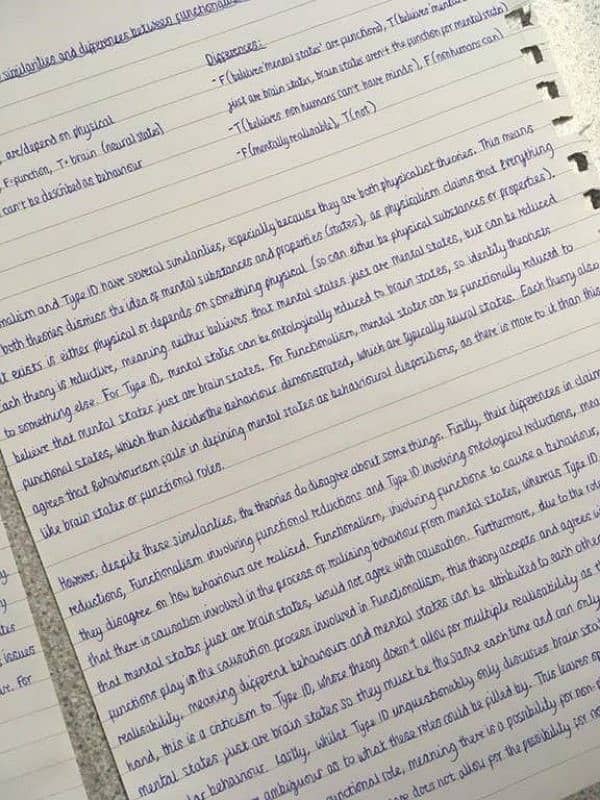 similarities and differences between functionali
Differences:
-F(believes 'mental states' are functions), T(believes 'mental
just are brain states, brain states aren't the function for mental state)
-T(believes non humans can't have minds), F(nonhumans can)
-F(mentally realisable), T(not)
are/depend on physical
F=function, T=brain (neural states)
can't be described as behaviour
nalism and Type ID have several similarities, especially because they are both physicalist theories. This means
both theories dismiss the idea of mental substances and properties (states), as physicalism claims that everything
t exists is either physical or depends on something physical (so can either be physical substances or properties).
Each theory is reductive, meaning neither believes that mental states just are mental states, but can be reduced
to something else. For Type ID, mental states can be ontologically reduced to brain states, so identity theorists
believe that mental states just are brain states. For Functionalism, mental states can be functionally reduced to
functional states, which then decides the behaviour demonstrated, which are typically neural states. Each theory also
agrees that Behaviourism fails in defining mental states as behavioural dispositions, as there is more to it than this
like brain states or functional roles.
However, despite these similarities, the theories do disagree about some things. Firstly, their differences in claim
reductions, Functionalism involving functional reductions and Type ID involving ontological reductions, mea
they disagree on how behaviours are realised. Functionalism, involving functions to cause a behaviour,
that there is causation involved in the process of realising behaviour from mental states, whereas Type ID
that mental states just are brain states, would not agree with causation. Furthermore, due to the role
functions play in the causation process involved in Functionalism, this theory accepts and agrees w
realisability, meaning different behaviours and mental states can be attributed to each other
hand, this is a criticism to Type ID, whose theory doesn't allow for multiple realisability as th
mental states just are brain states so they must be the same each time and can only
lar behaviour. Lastly, whilst Type ID unquestionably only discusses brain sta
ambiguous as to what these roles could be filled by. This leaves op
unctional role, meaning there is a possibility for non-
does not allow for the possibility for no
y
y
tes
issues
ur. For